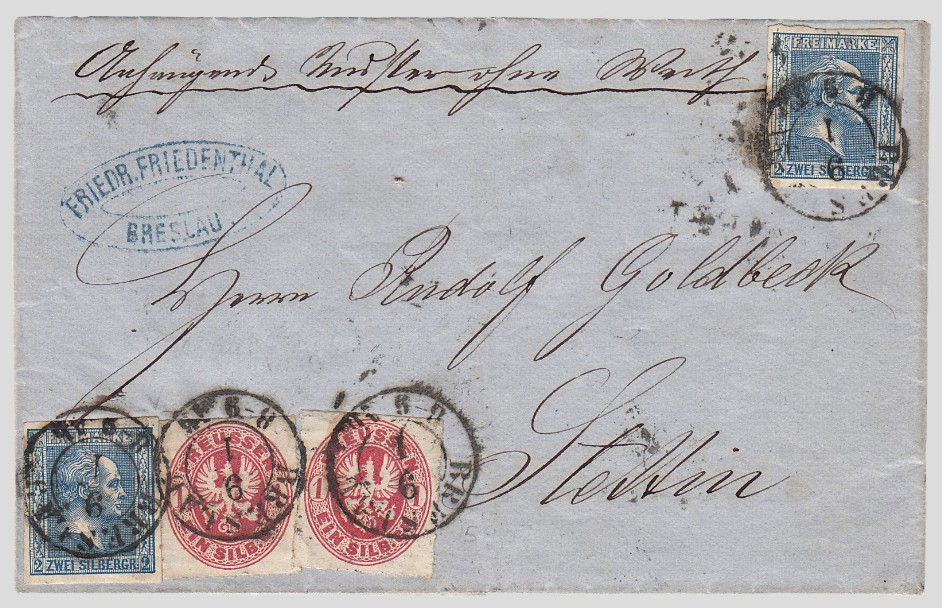 Anhängend Muster ohne Werth
FREIMARKE
2 ZWEI SILBERGR.
1
6
FRIEDR. FRIEDENTHAL
BRESLAU
Herrn Rudolf Goldbeck
Stettin
2 ZWEI SILBERGR. 2
BRESLAU
1
6
PREUSSEN
1 EIN SILBERGR.
1
6
PREUSSEN
1 EIN SILBERGR. 1
1
6